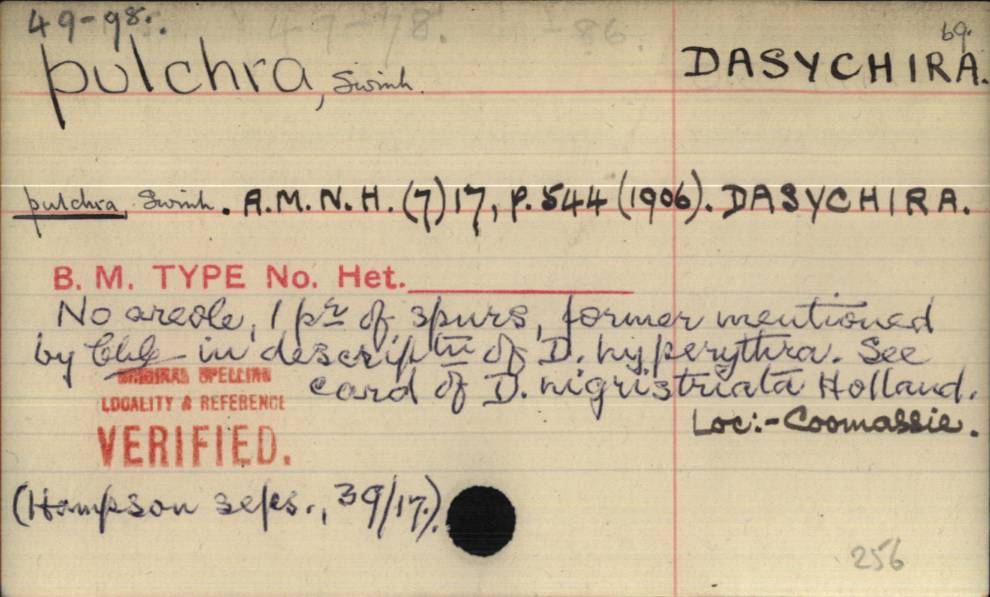 49-98.
69.
pulchra, Swinh. DASYCHIRA.
pulchra, Swinh. A.M.N.H. (7) 17, P. 544 (1906). DASYCHIRA.
B. M. TYPE No. Het.
No areole, 1 pr of spurs, former mentioned
by in descriptn of D. hyperythra. See
card of D. nigristriata Holland.
ORIGINAL SPELLING
LOCALITY & REFERENCE
VERIFIED.
Loc:- Coomassie.
(Hampson seps., 39/17.)
256